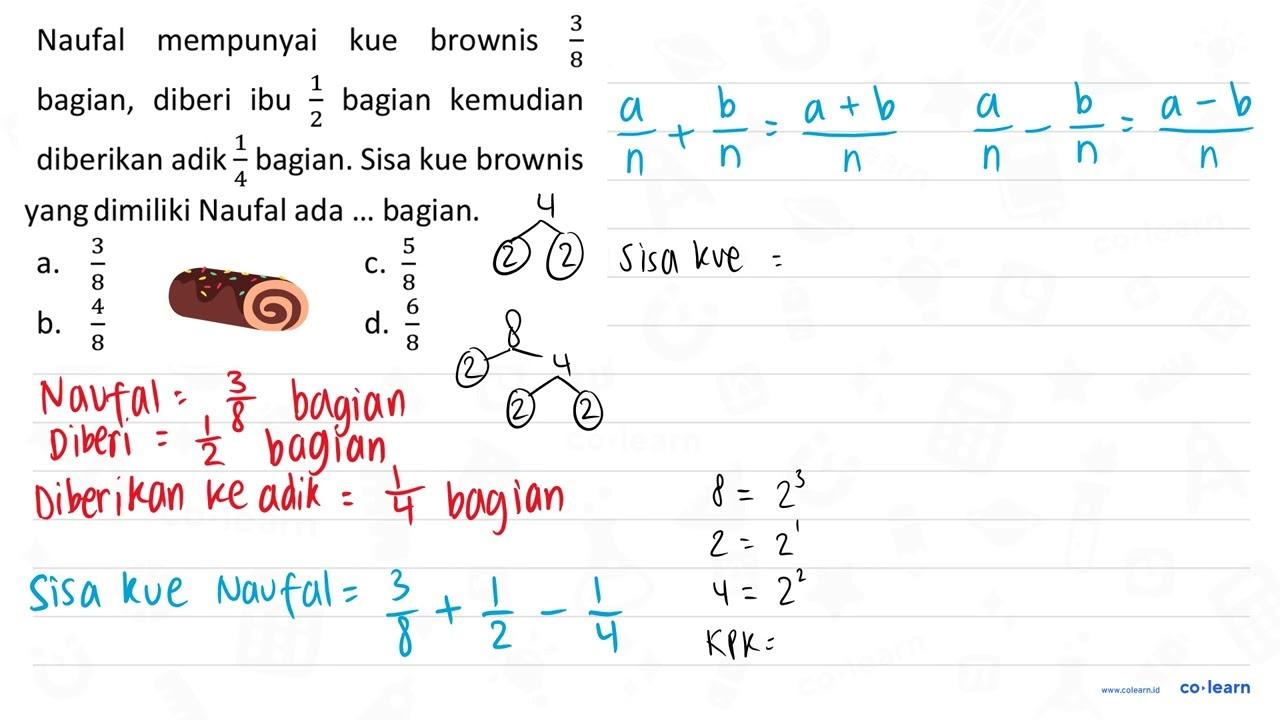 Naufal mempunyai kue brownis 3/8
bagian, diberi ibu 1/2 bagian kemudian
diberikan adik 1/4 bagian. Sisa kue brownis
yang dimiliki Naufal ada ... bagian.
a. 3/8 c. 5/8
b. 4/8 d. 6/8
a/n + b/n = a + b/n a/n - b/n = a - b/n
4
2 2
8
2 4
2 2
Sisa kue =
Naufal = 3/8 bagian
Diberi = 1/2 bagian
Diberikan ke adik = 1/4 bagian
Sisa kue Naufal = 3/8 + 1/2 - 1/4
8 = 2³
2 = 2¹
4 = 2²
KPK =
www.colearn.id co·learn